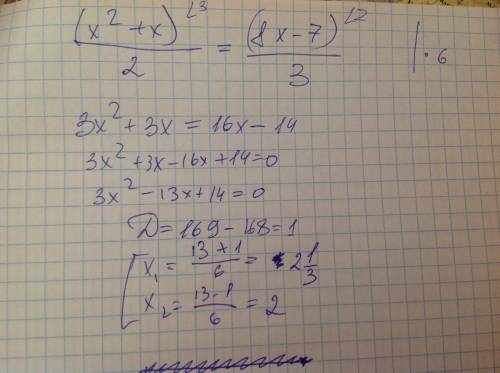 (x² + x)^{∠3} / 2 = (8x - 7)^{∠2} / 3 | · 6
3x² + 3x = 16x - 14
3x² + 3x - 16x + 14 = 0
3x² - 13x + 14 = 0
D = 169 - 168 = 1
[ x₁ = (13 + 1) / 6 = 2 1/3
x₂ = (13 - 1) / 6 = 2